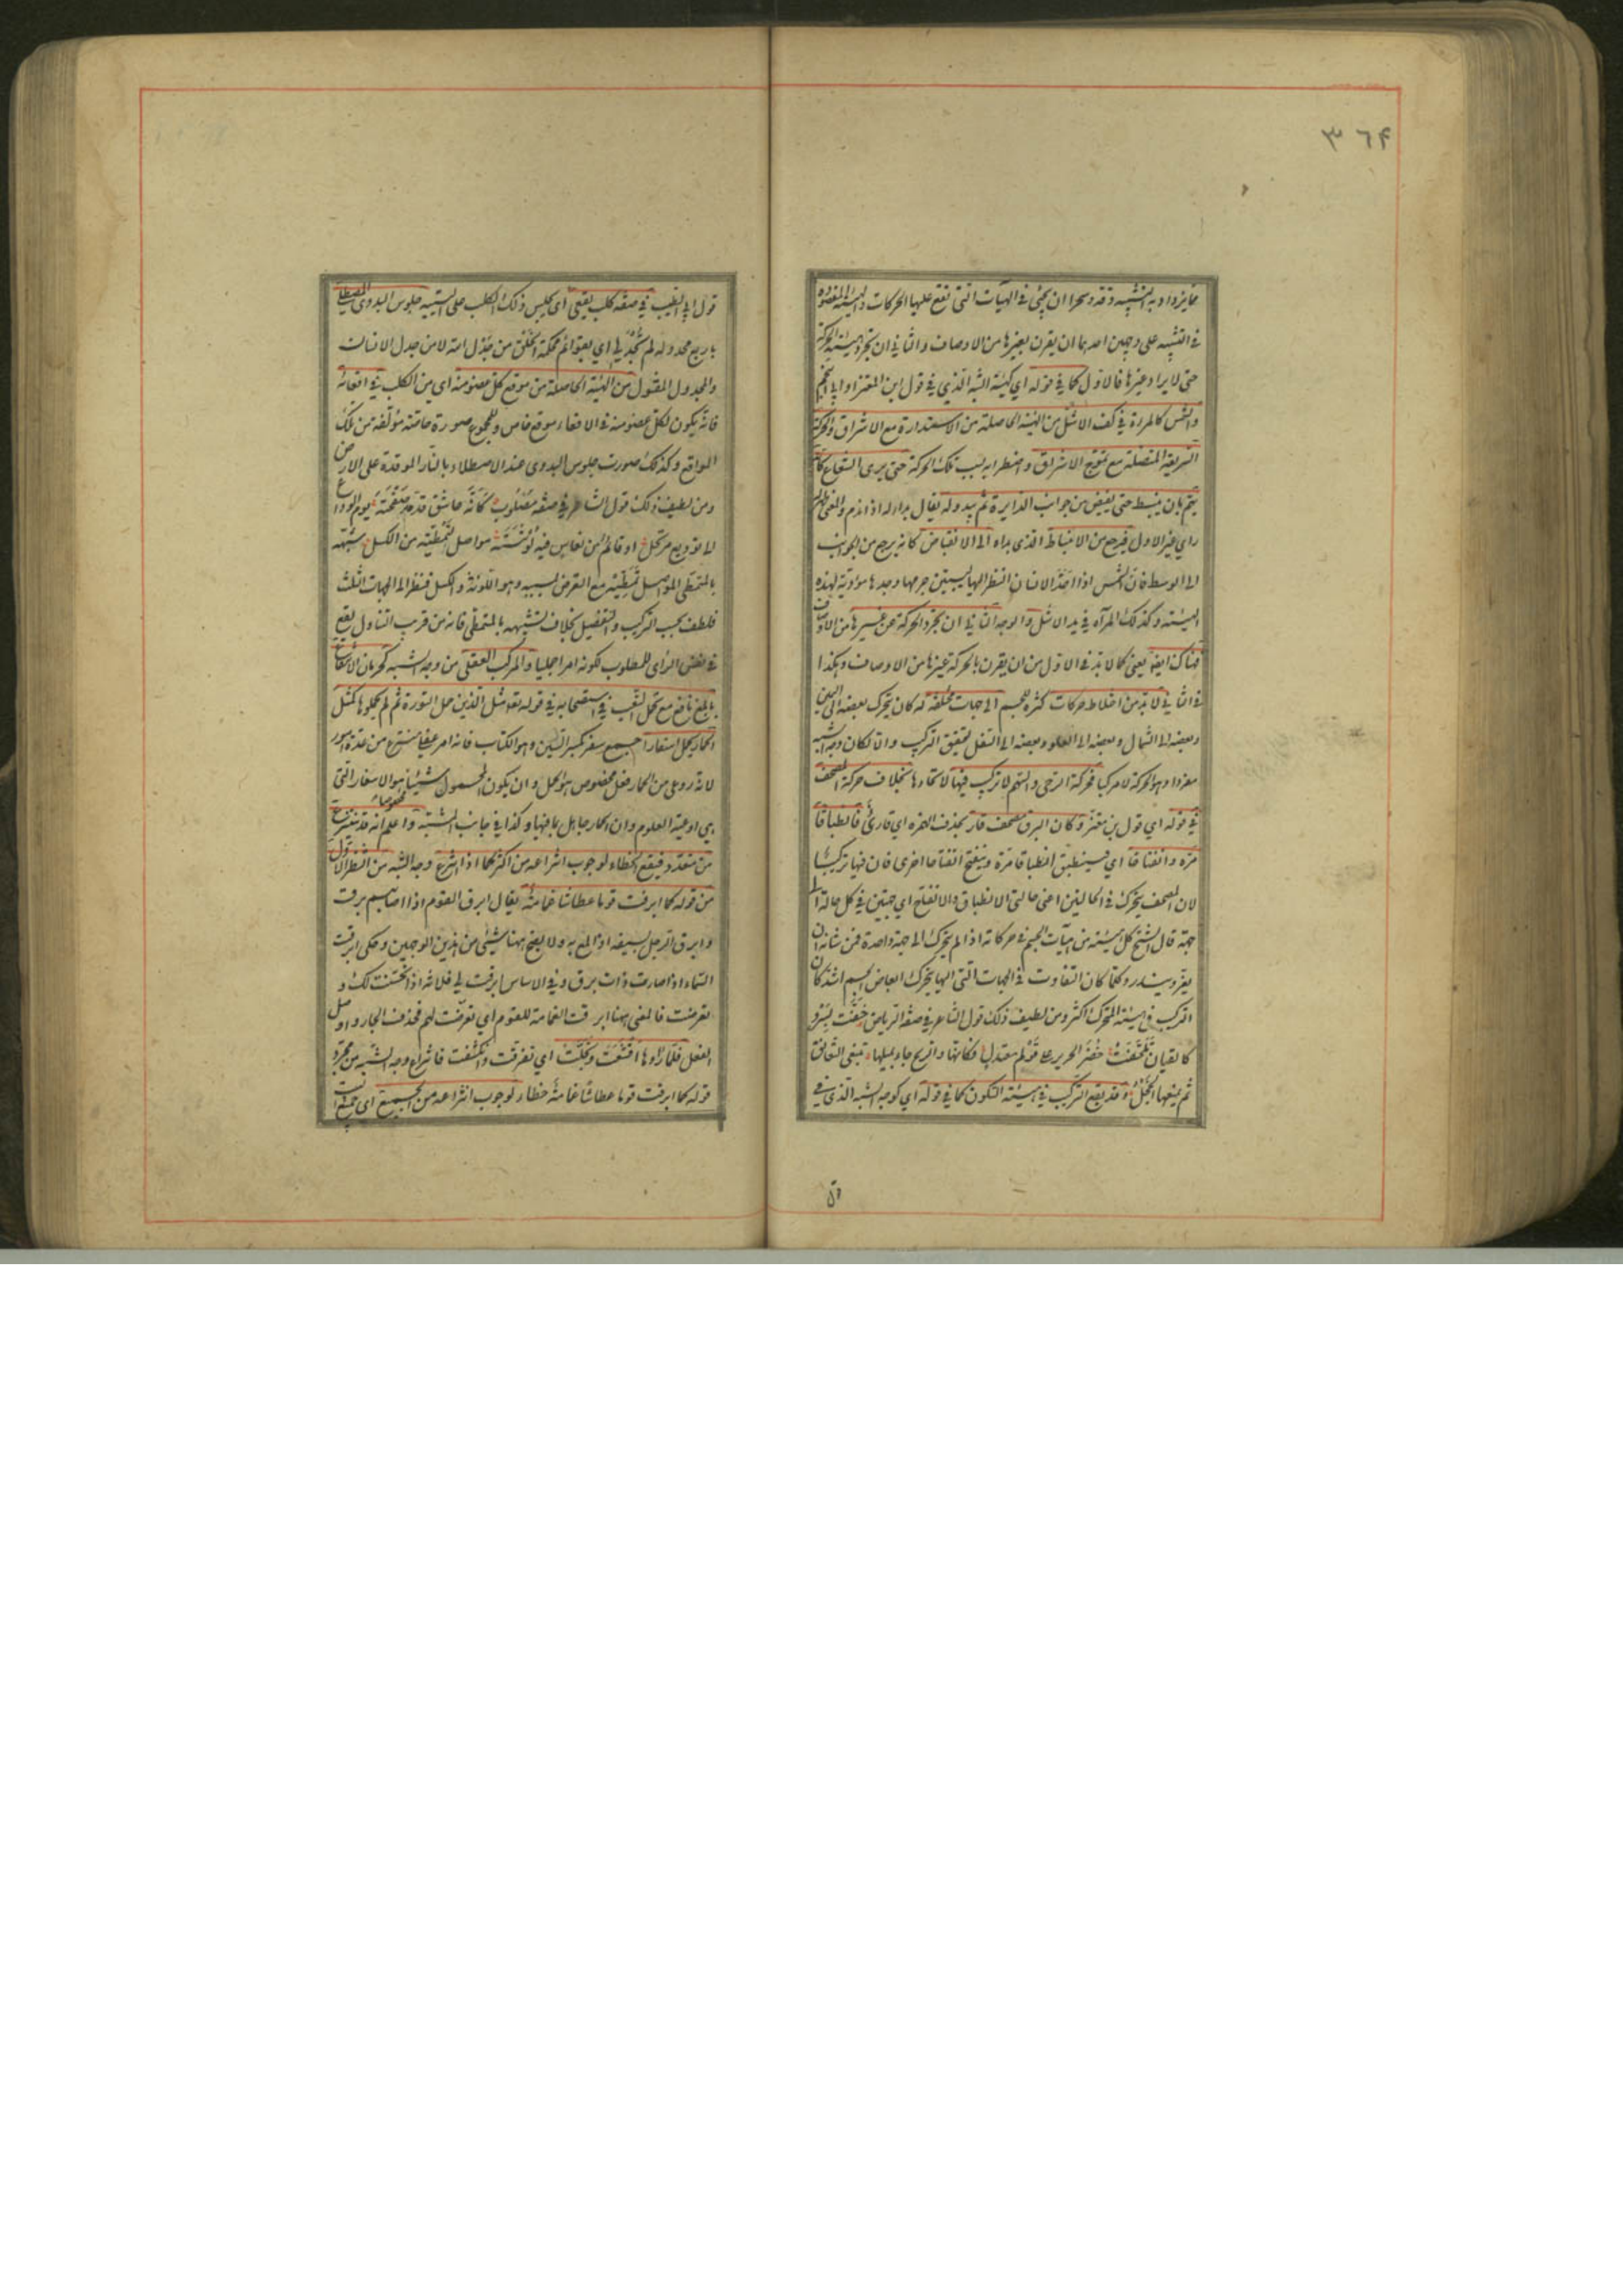 ٣٦٤
مما يزداد به التشبيه دقة وسحرا ان يجئ في الهيآت التي تقع عليها الحركات والهيئة المقصودة
في التشبيه على وجهين احدهما ان يقرن بغيرها من الاوصاف والثاني ان تجرد هيئة الحركة
حتى لا يراد غيرها فالاول كما في قوله اي كهيئة الشبه الذي في قول ابن المعتز او ابي النجم
والشمس كالمرآة في كف الاشل من الهيئة الحاصلة من الاستدارة مع الاشراق والحركة
السريعة المتصلة مع تموج الاشراق واضطرابه بسبب تلك الحركة حتى يرى الشعاع كانه
يهم بان ينبسط حتى يفيض من جوانب الدايرة ثم يبدو له يقال بدا له اذا ندم والمعنى ظهر له
راي غير الاول فيرجع من الانبساط الذي بداه الى الانقباض كانه يرجع من الجوانب
الى الوسط فان الشمس اذا احد الانسان النظر اليها ليتبين جرمها وجدها مؤدية لهذه
الهيئة وكذلك المرآة في يد الاشل والوجه الثاني ان تجرد الحركة عن غيرها من الاوصاف
فهناك ايضا يعني كما لا بد في الاول من ان يقرن بالحركة غيرها من الاوصاف وهكذا
في الثاني لا بد من اختلاط حركات كثيرة للجسم الى جهات مختلفة له كان يتحرك بعضه الى اليمين
وبعضه الى الشمال وبعضه الى العلو وبعضه الى السفل ليتحقق التركيب والا لكان وجه الشبه
مفردا وهو الحركة لا مركبا فحركة الرحى والسهم لا تركيب فيها لاتحادها بخلاف حركة المصحف
في قوله اي قول بن معتز وكان البرق مصحف قار بحذف الهمزه اي قارئ فانطباقا
مرة وانفتاحا اي فينطبق انطباقا مرة وينفتح انفتاحا اخرى فان فيها تركيبا
لان المصحف يتحرك في الحالتين اعني حالتي الانطباق والانفتاح اي جهتين في كل حالة الى
جهة قال الشيخ كل هيئة من هيآت الجسم في حركاته اذا لم يتحرك الى جهة واحدة فمن شانه ان
يعز ويندر وكلما كان التفاوت في الجهات التي اليها يتحرك ابعاض الجسم اشد كان
التركيب في هيئة المتحرك اكثر ومن لطيف ذلك قول الشاعر في صفة الرياض حفت بسرو
كالقيان تلحفت خضر الحرير على قوام معتدل فكانها والريح جاء يميلها تبغي التعانق
ثم يمنعها الخجل وقد يقع التركيب في هيئة السكون كما في قوله اي كوجه الشبه الذي في
قول ابي الطيب في صفة كلب يقعي اي يجلس ذلك الكلب على اليتيه جلوس البدوي المصطلي
باربع مجدولة لم تجدل اي بقوائم محكمة الخلق من جدل الله لا من جدل الانسان
والمجدول المفتول من الهيئة الحاصلة من موقع كل عضو منه اي من الكلب في اقعائه
فانه يكون لكل عضو منه في الاقعاء موقع خاص وللمجموع صورة خاصة مؤلفة من تلك
المواقع وكذلك صورت جلوس البدوي عند الاصطلاء بالنار الموقدة على الارض
ومن لطيف ذلك قول الشاعر في صفة مصلوب كانه عاشق قد مد صفحته يوم الوداع
الى توديع مرتحل او قائم من نعاس فيه لوثته مواصل لتمطيه من الكسل شبهه
بالمتمطي المواصل تمطيه مع التعرض لسببه وهو اللوثة والكسل فنظر الى الجهات الثلث
فلطف بحسب التركيب والتفصيل بخلاف تشبيهه بالمتمطي فانه من قريب التناول يقع
في نفس الرائي للمطلوب لكونه امرا جمليا والمركب العقلي من وجه الشبه كحرمان الانتفاع
بابلغ نافع مع تحمل التعب في استصحابه في قوله تع مثل الذين حملوا التورة ثم لم يحملوها كمثل
الحمار يحمل اسفارا جمع سفر بكسر السين وهو الكتاب فانه امر عقلي منتزع من عدة امور
لانه روعي من الحمار فعل مخصوص هو الحمل وان يكون المحمول شيئا مخصوصا هو الاسفار التي
هي اوعية العلوم وان الحمار جاهل بما فيها وكذا في جانب المشبه واعلم انه قد ينتزع
من متعدد فيقع الخطاء لوجوب انتزاعه من اكثر كما اذا انتزع وجه الشبه من الشطر الاول
من قوله كما ابرقت قوما عطاشا غمامة يقال ابرق القوم اذا اصابهم برق
وابرق الرجل بسيفه اذا لمع به ولا يصح ههنا شئ من هذين الوجهين وحكى ابرقت
السماء اذا صارت ذات برق وفي الاساس ابرقت لي فلانة اذا تحسنت لك و
تعرضت فالمعنى ههنا ابرقت الغمامة للقوم اي تعرضت لهم فحذف الجار واوصل
الفعل فلما راوها اقشعت وتجلت اي تفرقت وانكشفت فانتزاع وجه الشبه من مجرد
قوله كما ابرقت قوما عطاشا غمامة خطاء لوجوب انتزاعه من الجميع اي جميع البيت